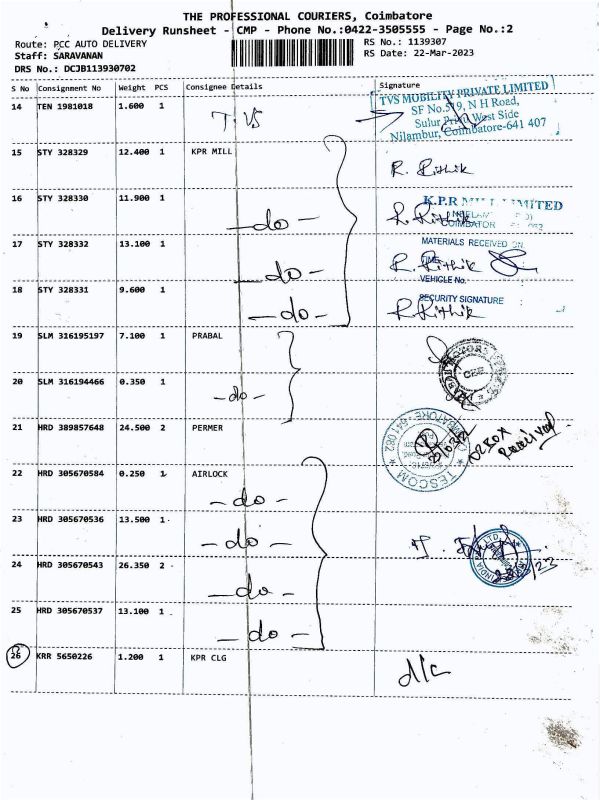 THE PROFESSIONAL COURIERS, Coimbatore
Delivery Runsheet - CMP - Phone No.:0422-3505555 - Page No.:2
Route: PCC AUTO DELIVERY
RS No.: 1139307
Staff: SARAVANAN
RS Date: 22-Mar-2023
DRS No.: DCJB113930702
S No Consignment No Weight PCS Consignee Details Signature
14 TEN 1981018 1.600 1 TVS
TVS MOBILITY PRIVATE LIMITED
SF No.519, N H Road,
Sulur Pirivu West Side
Nilambur, Coimbatore-641 407
15 STY 328329 12.400 1 KPR MILL R. Rithik
16 STY 328330 11.900 1 -do- R. Rithik
K.P.R MILL LIMITED
COIMBATOR
17 STY 328332 13.100 1 -do- R. Rithik
MATERIALS RECEIVED ON
TIME
VEHICLE No.
18 STY 328331 9.600 1 -do- R Rithik
SECURITY SIGNATURE :
19 SLM 316195197 7.100 1 PRABAL
20 SLM 316194466 0.350 1 -do-
21 HRD 389857648 24.500 2 PERMER
Received
TESCOM
COIMBATORE - 641 062
22 HRD 305670584 0.250 1 AIRLOCK
-do-
23 HRD 305670536 13.500 1 -do-
24 HRD 305670543 26.350 2 -do-
25 HRD 305670537 13.100 1 -do-
26 KRR 5650226 1.200 1 KPR CLG d/c